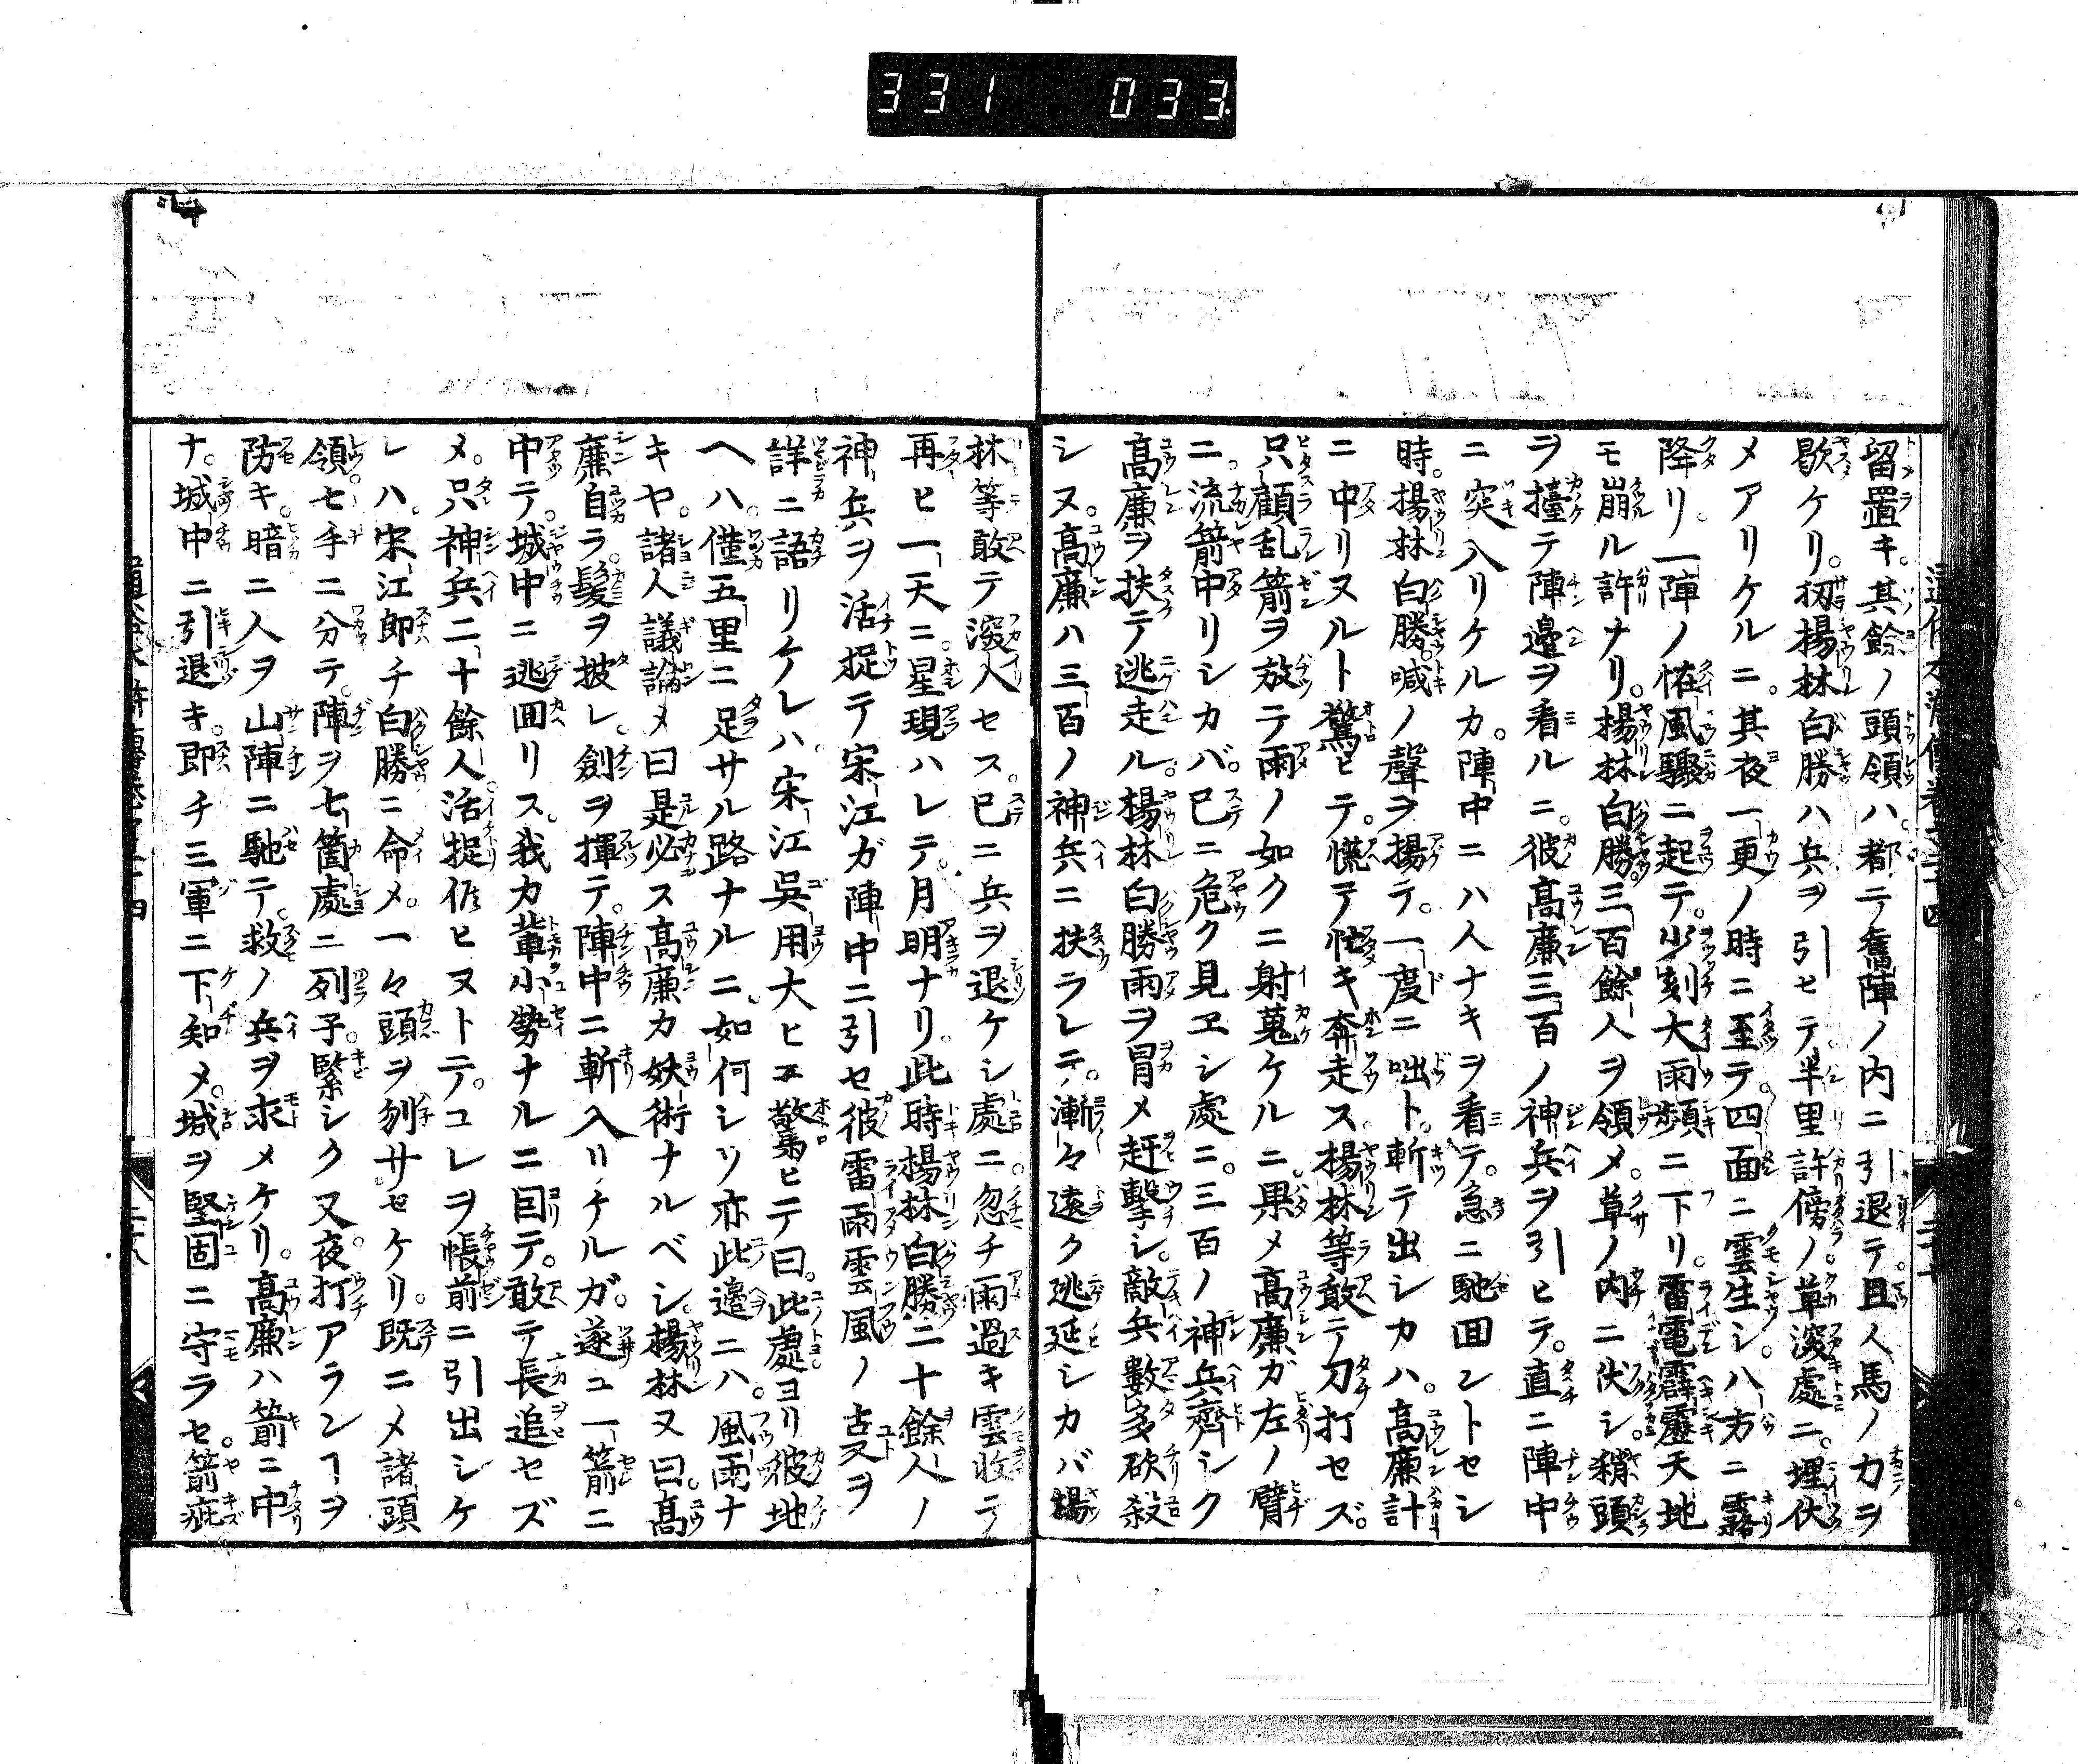 331 033
留置キ。其餘ノ頭領ハ。都テ舊陣ノ内ニ引退テ。且人馬ノカヲ
歇ケリ。扨楊林白勝ハ兵ヲ引ヒテ。半里許傍ノ草深處ニ。埋伏
メアリケルニ。其夜一更ノ時ニ至テ。四面ニ雲生シ。八方ニ霧
降リ。一陣ノ怪風驟ニ起テ。少刻大雨頻ニ下リ。雷電霹靂天地
モ崩ル許ナリ。楊林白勝。三百餘人ヲ領メ。草ノ内ニ伏シ。稍頭
ヲ擡テ陣邉ヲ看ルニ。彼高廉三百ノ神兵ヲ引ヒテ。直ニ陣中
ニ突入リケルカ。陣中ニハ人ナキヲ看テ。急ニ馳囬ントセシ
時。楊林白勝。喊ノ聲ヲ揚テ。一度ニ咄ト。斬テ出シカハ。高廉計
ニ中リヌルト驚ヒテ。慌テ忙キ奔走ス。楊林等敢テ刀打セズ。
只顧乱箭ヲ放テ雨ノ如クニ射蒐ケルニ。果メ高廉ガ左ノ臂
ニ。流箭中リシカバ。已ニ危ク見ヱシ處ニ。三百ノ神兵齊シク
高廉ヲ扶テ逃走ル。楊林白勝雨ヲ冒メ赶擊シ。敵兵數多砍殺
シヌ。高廉ハ三百ノ神兵ニ扶ラレテ。漸々遠ク逃延シカバ楊
林等敢テ深入セス。已ニ兵ヲ退ケシ處ニ。忽チ雨過キ雲收テ
再ヒ一天ニ。星現ハレテ。月明ナリ。此時楊林白勝。二十餘人ノ
神兵ヲ活捉テ宋江ガ陣中ニ引セ彼雷雨雲風ノ事ヲ
詳ニ語リケレハ。宋江呉用大ヒニ驚ヒテ曰。此處ヨリ彼地
ヘハ。僅五里ニ足サル路ナルニ。如何シソ亦此邉ニハ。風雨ナ
キヤ。諸人議論メ曰是必ス高廉カ妖術ナルベシ。楊林又曰。高
廉自ラ。髪ヲ披レ。劍ヲ揮テ。陣中ニ斬入リチルガ。遂ュ一箭ニ
中テ。城中ニ逃囬リス。我カ輩小勢ナルニ因テ。敢テ長追セズ
メ。只神兵二十餘人。活捉候ヒヌトテ。コレヲ帳前ニ引出シケ
レハ。宋江即チ白勝ニ命メ。一々頭ヲ刎サセケリ。既ニメ諸頭
領。七手ニ分テ。陣ヲ七箇處ニ列子。緊シク又夜。打アランヿヲ
防キ。暗ニ人ヲ山陣ニ馳テ。救ノ兵ヲ求メケリ。高廉ハ箭ニ中
ナ。城中ニ引退キ。即チ三軍ニ下知メ。城ヲ堅固ニ守ラセ。箭疵